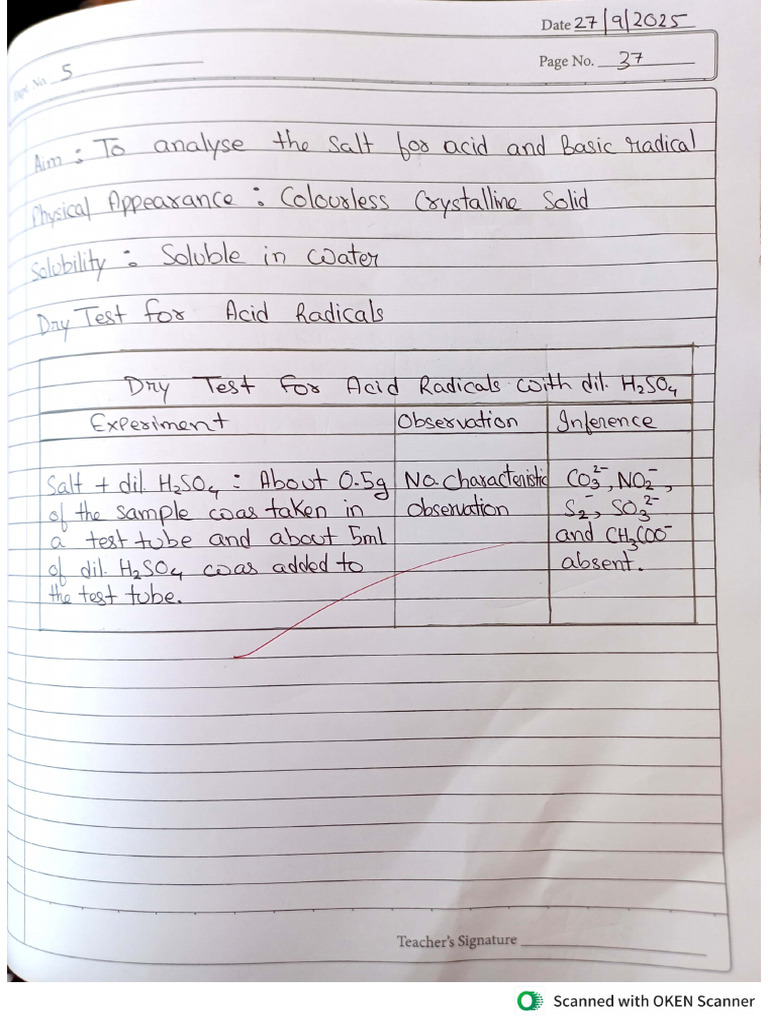 Date 27/9/2025
Page No. 37
Expt. No. 5
Aim : To analyse the salt for acid and Basic radical
Physical Appearance : Colourless Crystalline Solid
Solubility : Soluble in water
Dry Test for Acid Radicals
Dry Test for Acid Radicals with dil. H₂SO₄
Experiment Observation Inference
Salt + dil. H₂SO₄ : About 0.5g No characteristic CO₃²⁻, NO₂⁻,
of the sample was taken in observation S₂⁻, SO₃²⁻
a test tube and about 5ml and CH₃COO⁻
of dil. H₂SO₄ was added to absent.
the test tube.
Teacher's Signature
Scanned with OKEN Scanner